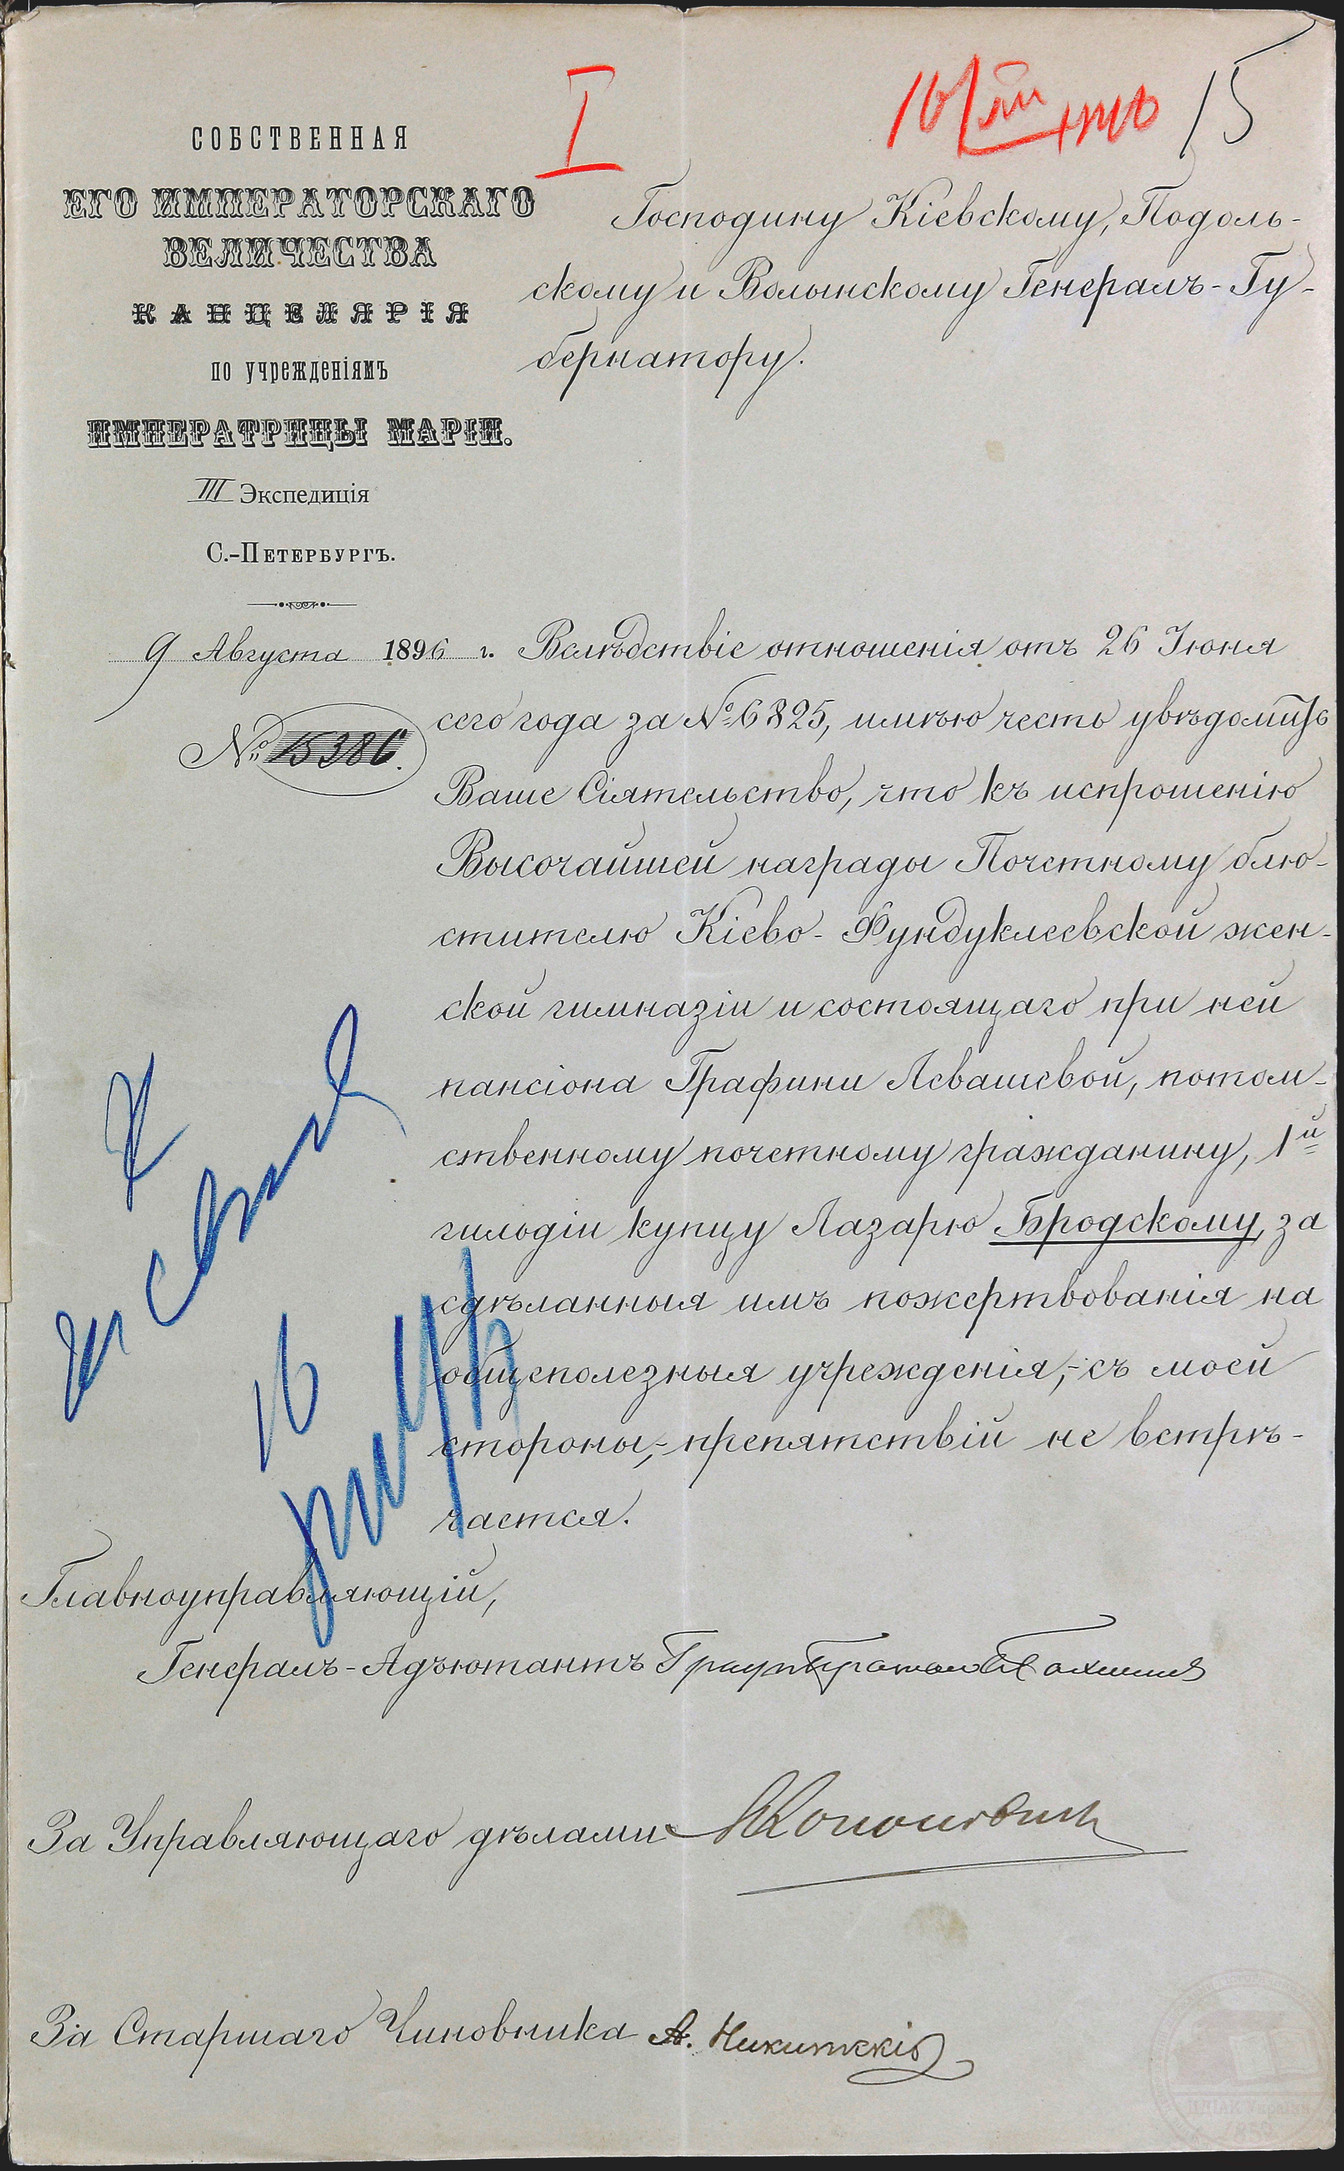 I
15
СОБСТВЕННАЯ
ЕГО ИМПЕРАТОРСКАГО
ВЕЛИЧЕСТВА
КАНЦЕЛЯРІЯ
по учрежденіямъ
ИМПЕРАТРИЦЫ МАРІИ.
III Экспедиція
С.-Петербургъ.
9 Августа 1896 г.
№ 15386.
Господину Кіевскому, Подоль-
скому и Волынскому Генералъ-Гу-
бернатору.
Вслѣдствіе отношенія отъ 26 Іюня
сего года за № 6825, имѣю честь увѣдомить
Ваше Сіятельство, что къ испрошенію
Высочайшей награды Почетному блю-
стителю Кіево-Фундуклеевской жен-
ской гимназіи и состоящаго при ней
пансіона Графини Левашевой, потом-
ственному почетному гражданину, 1й
гильдіи купцу Лазарю Бродскому, за
сдѣланныя имъ пожертвованія на
общеполезныя учрежденія,- съ моей
стороны,- препятствій не встрѣ-
чается.
16
Главноуправляющій,
Генералъ-Адъютантъ
За Управляющаго дѣлами
За Старшаго Чиновника А. Никитскій